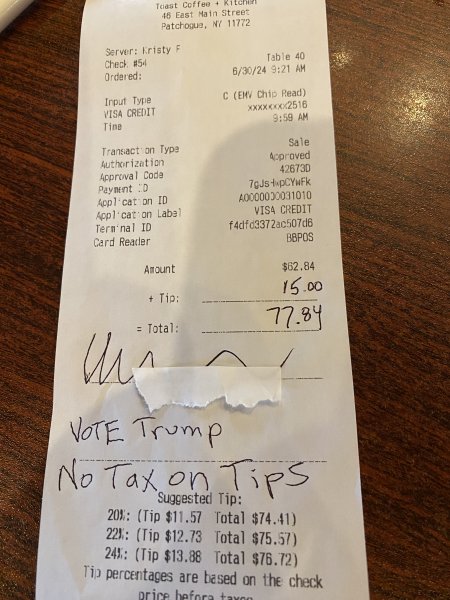 Toast Coffee + Kitchen
46 East Main Street
Patchogue, NY 11772
Server: Kristy F
Check #54 Table 40
Ordered: 6/30/24 9:21 AM
Input Type C (EMV Chip Read)
VISA CREDIT xxxxxxxx2516
Time 9:59 AM
Transaction Type Sale
Authorization Approved
Approval Code 42673D
Payment ID 7gJsHwpCYwFk
Application ID A0000000031010
Application Label VISA CREDIT
Terminal ID f4dfd3372ac507d6
Card Reader BBPOS
Amount $62.84
+ Tip: 15.00
= Total: 77.84
VOTE Trump
No Tax on Tips
Suggested Tip:
20%: (Tip $11.57 Total $74.41)
22%: (Tip $12.73 Total $75.57)
24%: (Tip $13.88 Total $76.72)
Tip percentages are based on the check
price before taxes